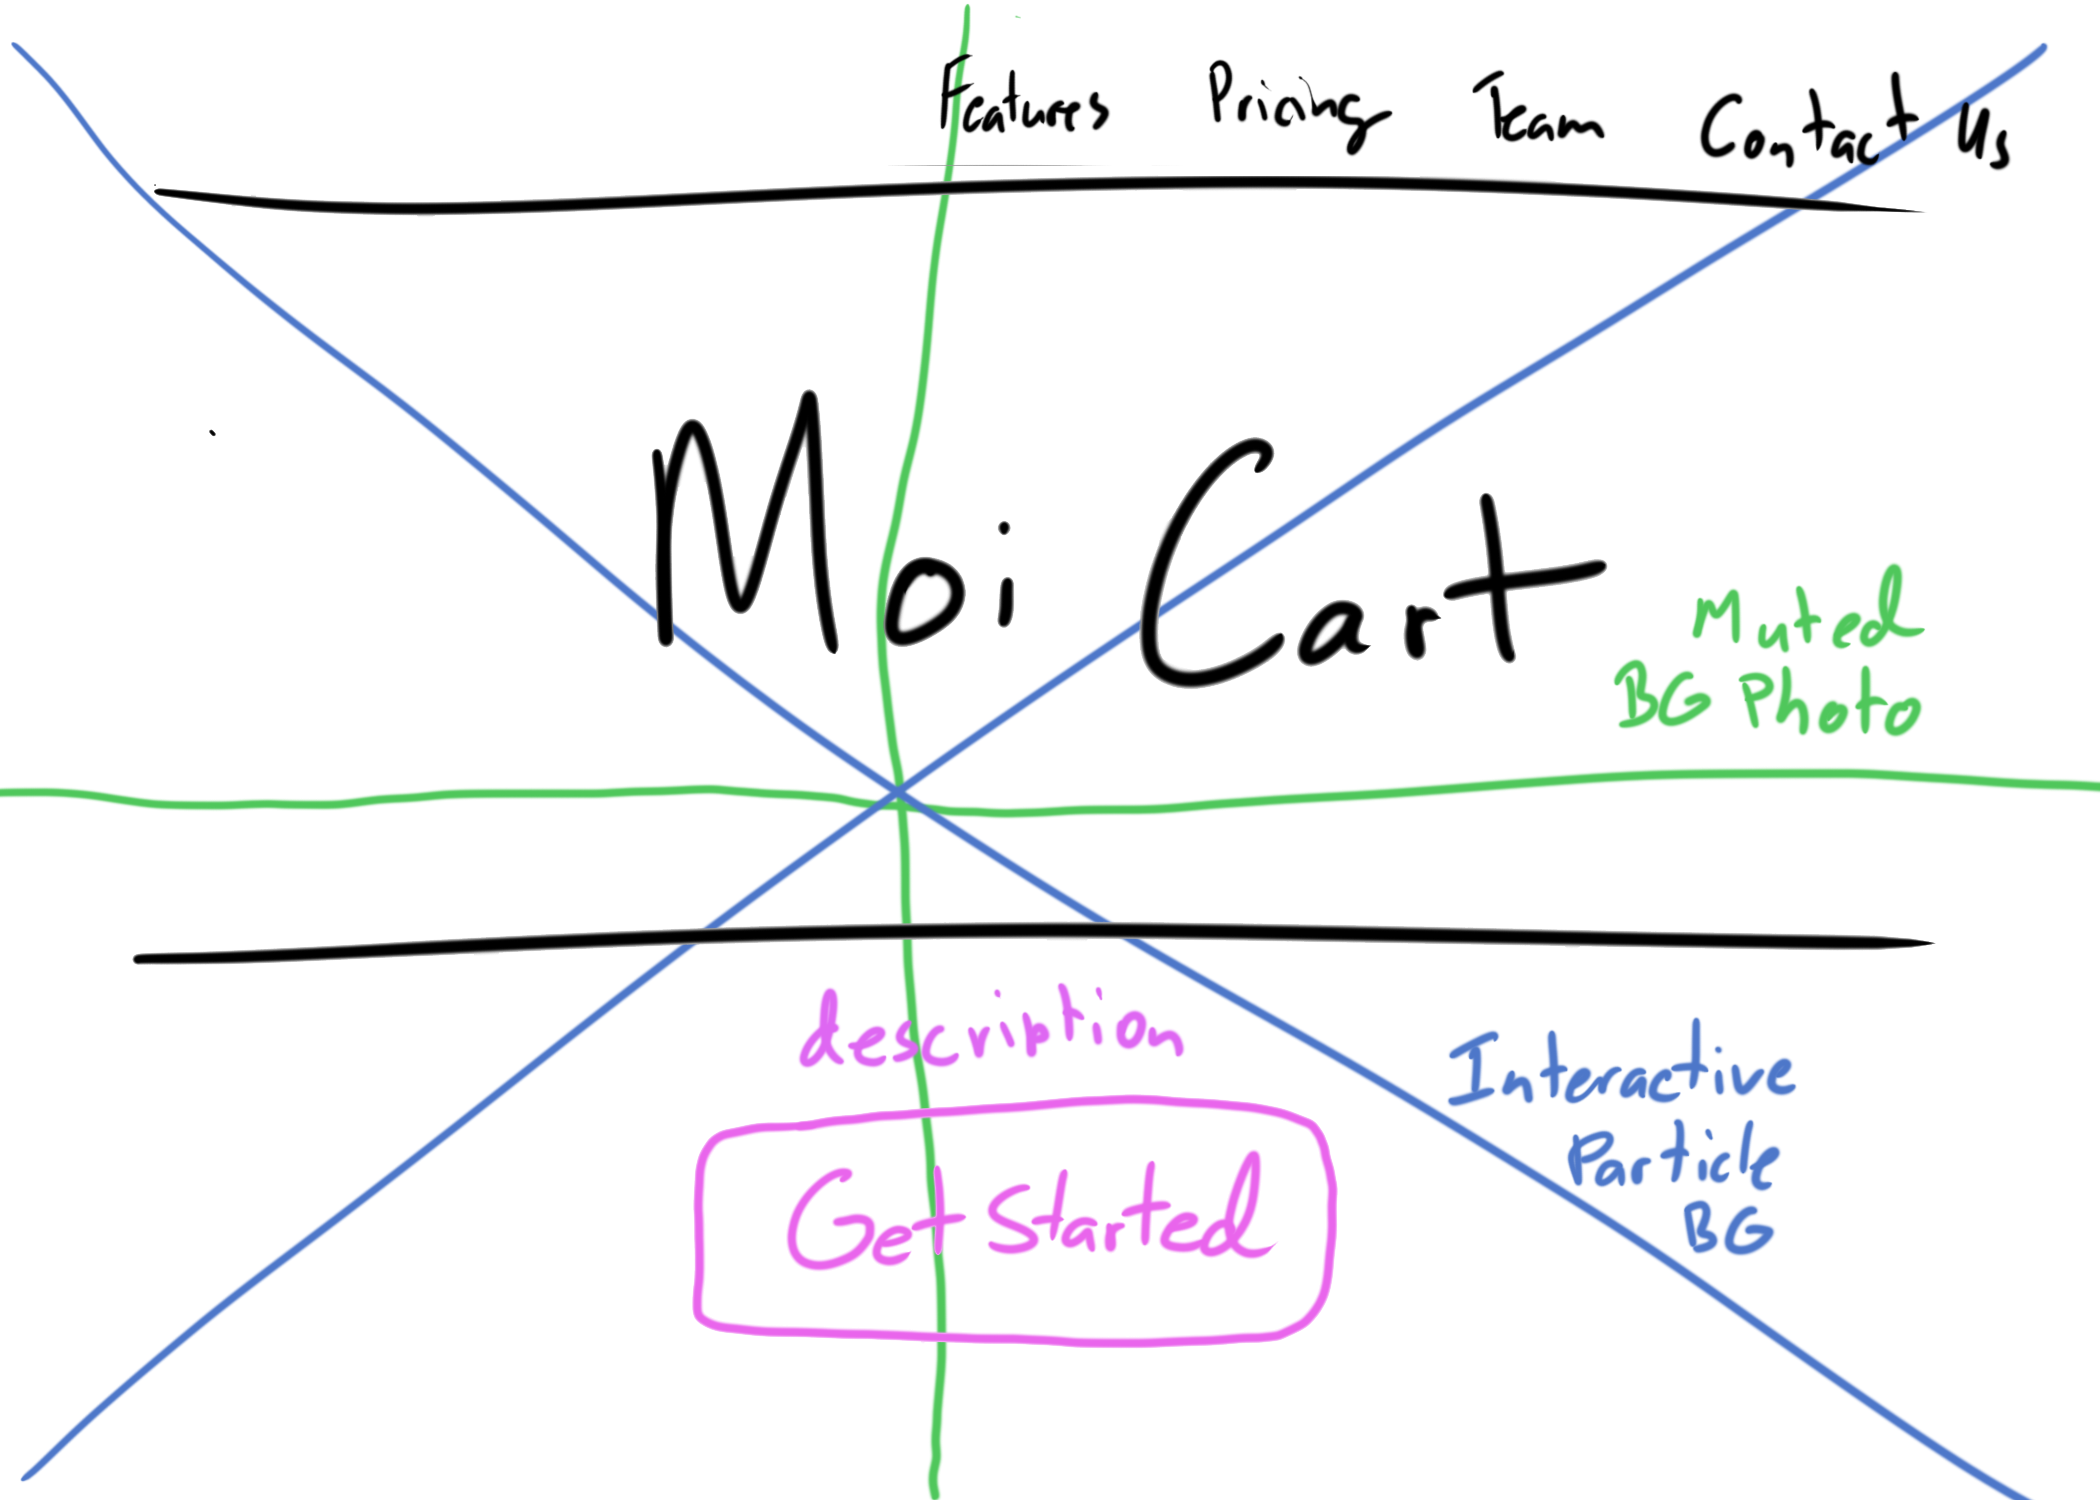 Features Pricing Team Contact Us
Moi Cart
Muted
BG Photo
description
Get Started
Interactive
Particle
BG